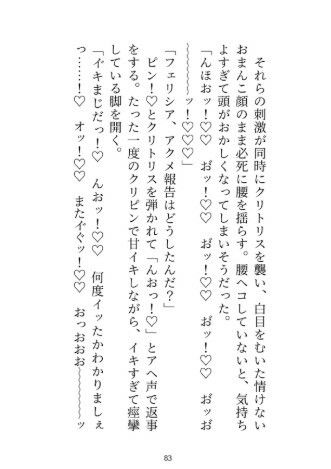 それらの刺激が同時にクリトリスを襲い、白目をむいた情けない
おまんこ顔のまま必死に腰を揺らす。腰ヘコしていないと、気持ち
よすぎて頭がおかしくなってしまいそうだった。
「んほおッ！♡♡　お゛ッ！♡♡　お゛ッ！♡♡　お゛ッお゛
～～～～～～ッ！♡♡♡」
「フェリシア、アクメ報告はどうしたんだ？」
　ピン！♡とクリトリスを弾かれて「んおっ！♡」とアヘ声で返事
をする。たった一度のクリピンで甘イキしながら、イキすぎて痙攣
している脚を開く。
「イキまじだっ！♡　んおッ！♡♡　何度イッたかわかりましぇ
っ……！♡　オッ！♡♡　またイぐッ！♡♡　おっおおお～～～～ッ
83